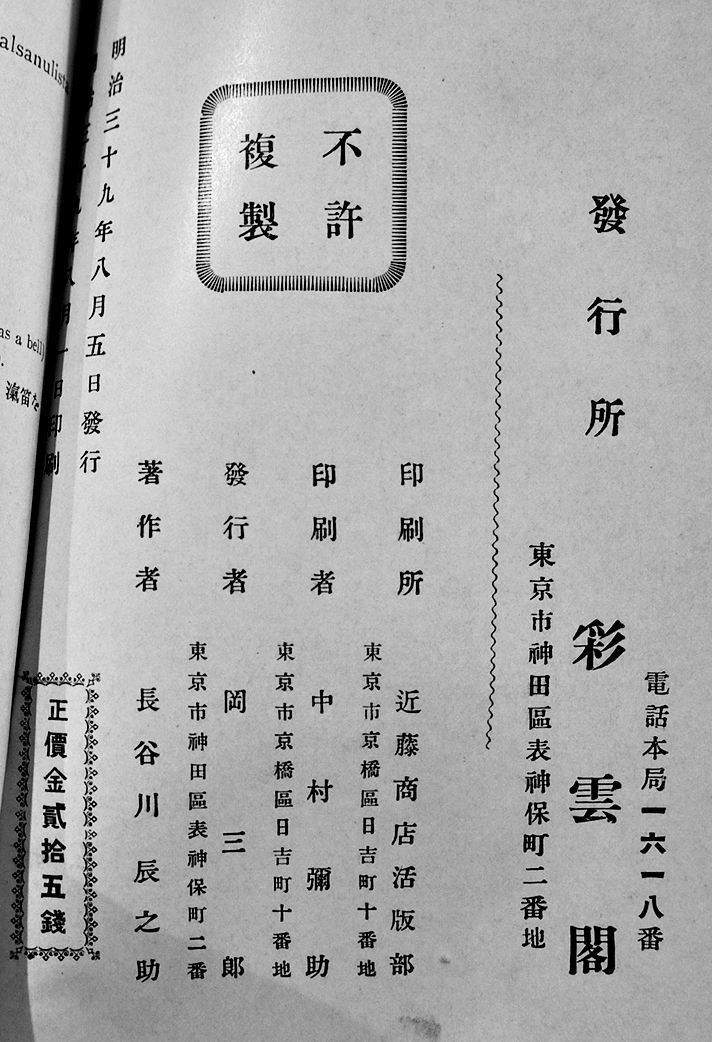 電話本局一六一八番
發行所 彩雲閣
東京市神田區表神保町二番地
不許
複製
印刷所 近藤商店活版部
東京市京橋區日吉町十番地
印刷者 中村彌助
東京市京橋區日吉町十番地
發行者 岡三郎
東京市神田區表神保町二番
著作者 長谷川辰之助
明治三十九年八月五日發行
治三十九年八月一日印刷
正價金貳拾五錢
as a bell)